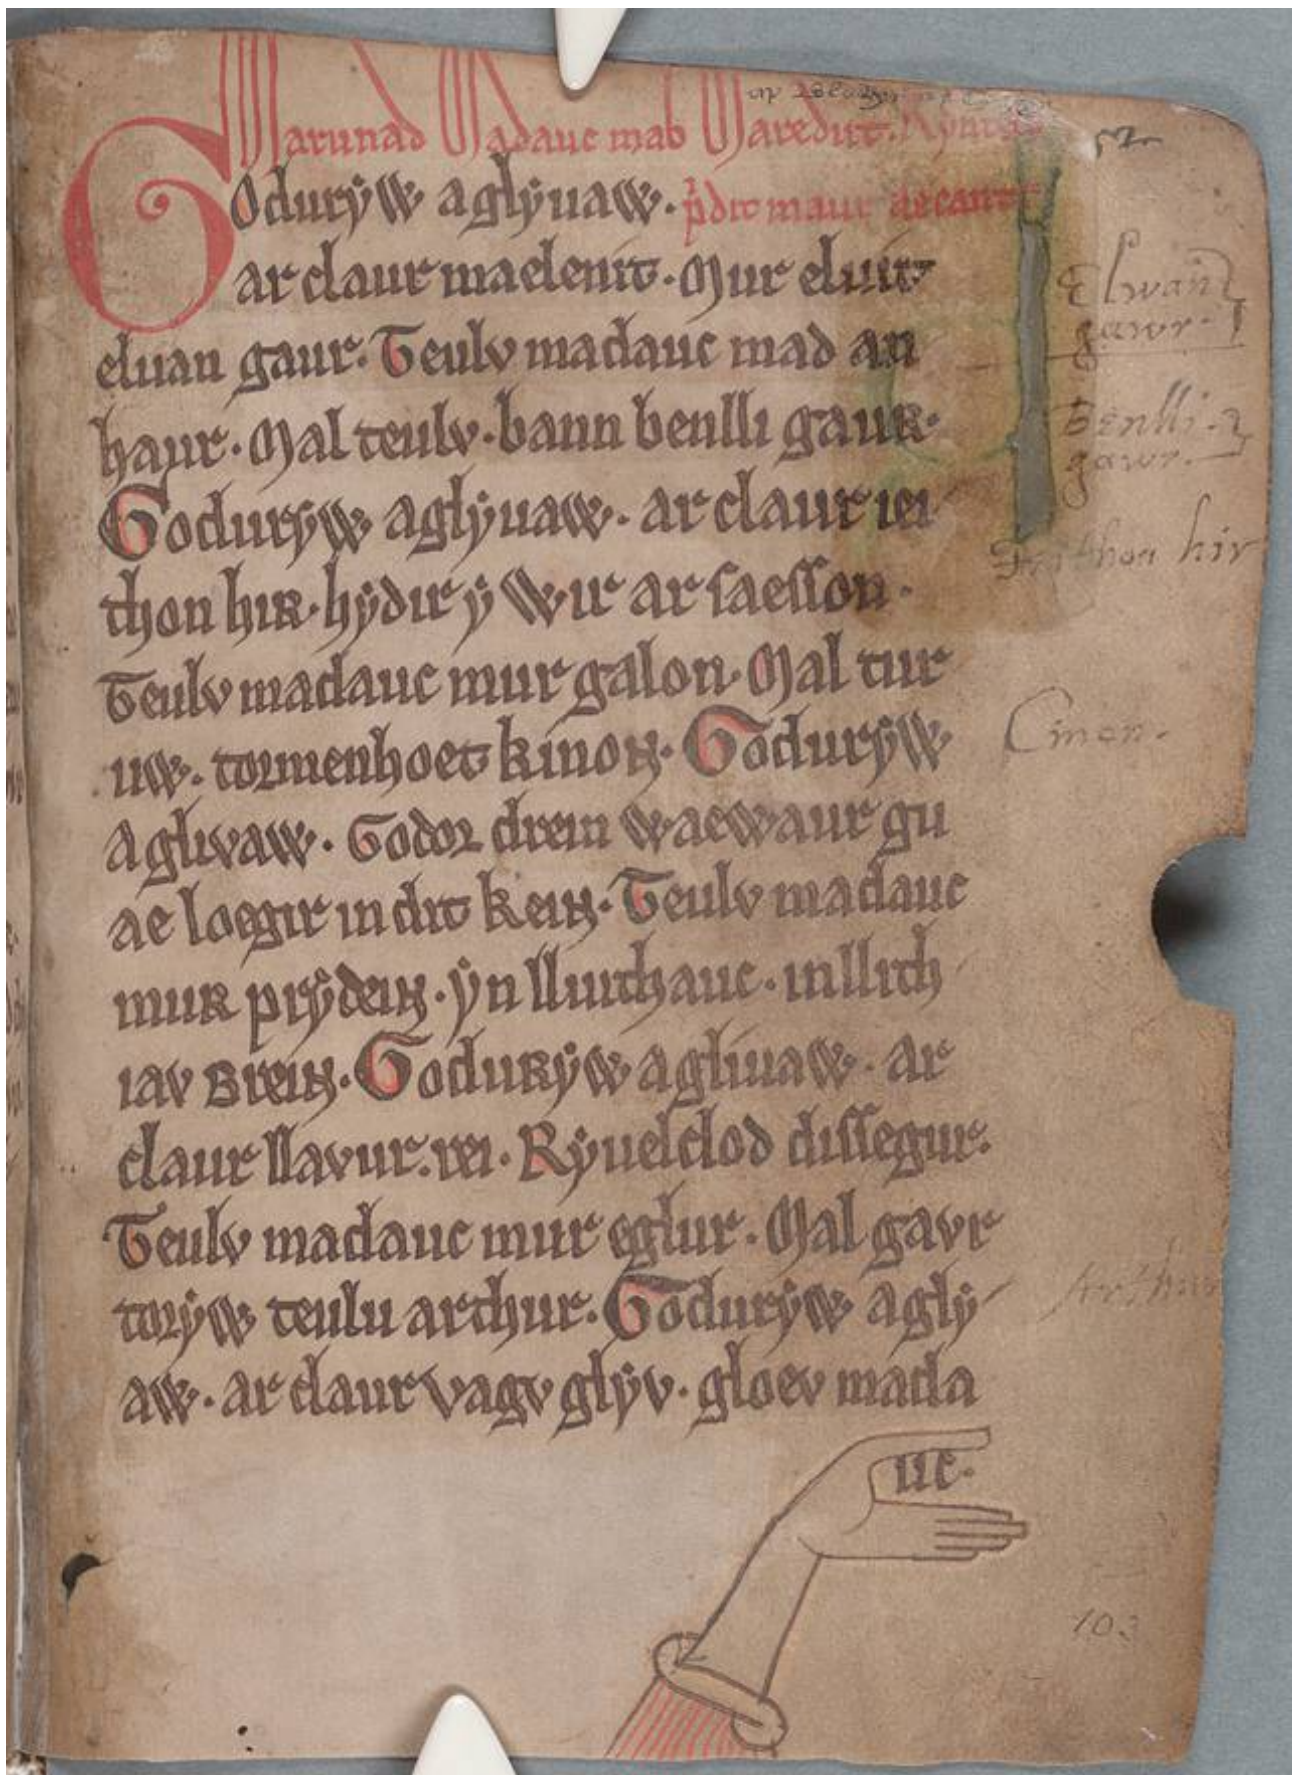 Marunad Madauc mab Maredut. Kyntelv
Goduryw aglyuaw. p̄dit maur aecant
ar claur maelenit. Mur eluit
eluan gaur. Teulv madauc mad an
haur. Mal teulv. bann benlli gaur.
Goduryw aglyuaw. ar claur iei
thon hir. hydir y wir ar saesson.
Teulv madauc mur galon. Mal tur
uw. tormenhoet kinon. Goduryw
a glivaw. Godor drein waewaur gu
ae loegir in dit kein. Teulv madauc
mur prydein. yn lluithauc. in llith
iav brein. Goduryw a gliuaw. ar
claur llavur. rei. Ryuelclod dissegur.
Teulv madauc mur eglur. Mal gavr
toryw teulu arthur. Goduryw a gly
aw. ar claur vagv glyv. gloev mada
uc.
52
Elwan
gawr.
Benlli
gawr.
hir
Cinon.
Arthur
103